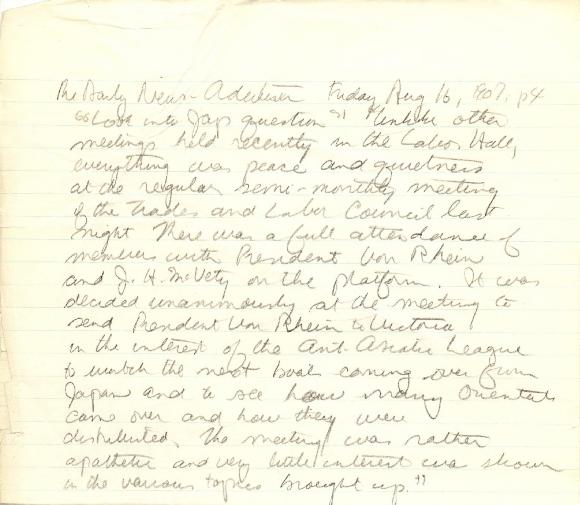 The Daily News-Advertiser Friday Aug 16, 1907, p4
"Look into Jap question" "Unlike other
meetings held recently in the Labor Hall,
everything was peace and quietness
at the regular semi-monthly meeting
of the Trades and Labor Council last
night There was a full attendance of
members with President Von Rhein
and J. H. McVety on the platform. It was
decided unanimously at the meeting to
send President Von Rhein to Victoria
in the interest of the Anti-Asiatic League
to watch the next boats coming over from
Japan and to see how many Orientals
came over and how they were
distributed. The meeting was rather
apathetic and very little interest was shown
in the various topics brought up."